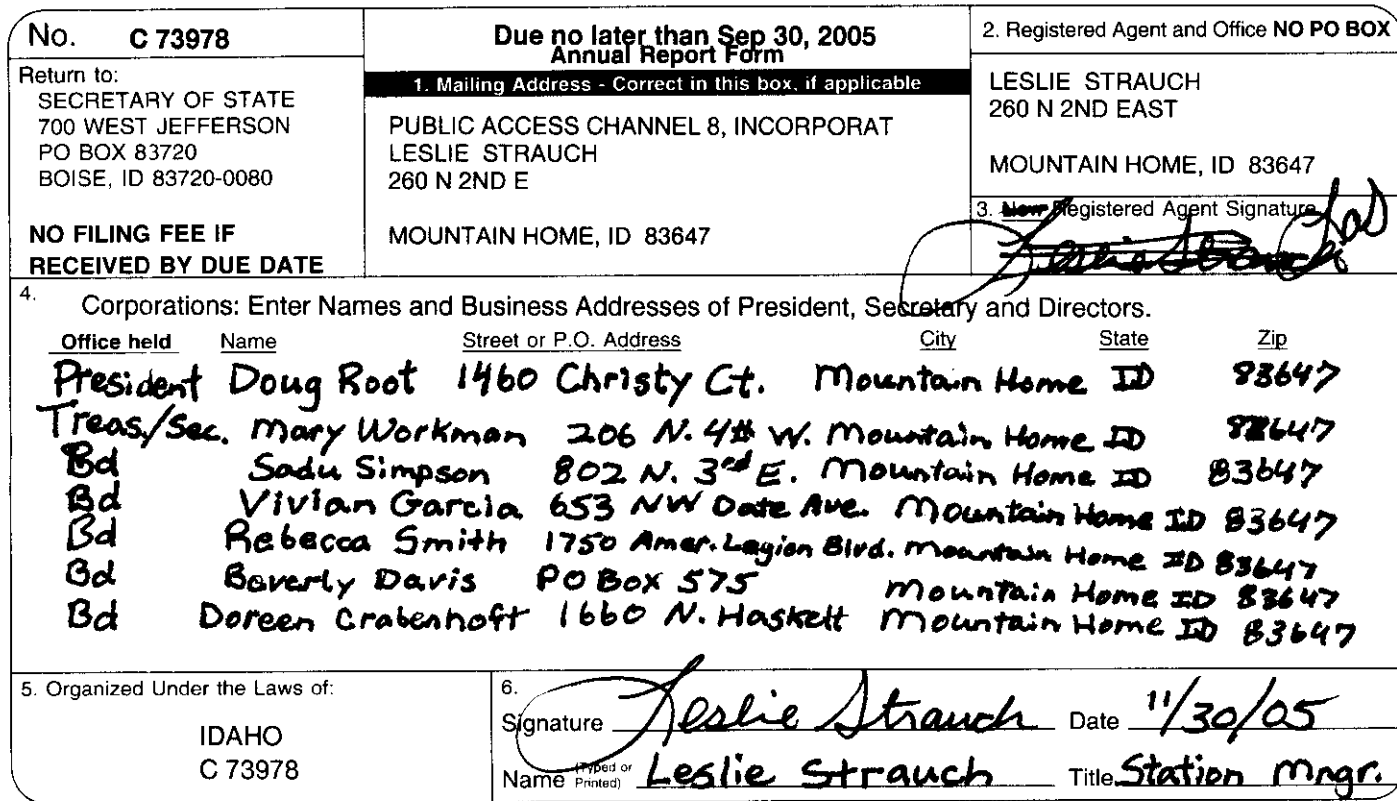 No. C 73978
Return to:
SECRETARY OF STATE
700 WEST JEFFERSON
PO BOX 83720
BOISE, ID 83720-0080
NO FILING FEE IF
RECEIVED BY DUE DATE
Due no later than Sep 30, 2005
Annual Report Form
1. Mailing Address - Correct in this box, if applicable
PUBLIC ACCESS CHANNEL 8, INCORPORAT
LESLIE STRAUCH
260 N 2ND E
MOUNTAIN HOME, ID 83647
2. Registered Agent and Office NO PO BOX
LESLIE STRAUCH
260 N 2ND EAST
MOUNTAIN HOME, ID 83647
3. New Registered Agent Signature
Leslie Strauch
4. Corporations: Enter Names and Business Addresses of President, Secretary and Directors.
Office held Name Street or P.O. Address City State Zip
President Doug Root 1460 Christy Ct. Mountain Home ID 83647
Treas./Sec. Mary Workman 206 N. 4th W. Mountain Home ID 83647
Bd Sadu Simpson 802 N. 3rd E. Mountain Home ID 83647
Bd Vivian Garcia 653 NW Date Ave. Mountain Home ID 83647
Bd Rebecca Smith 1750 Amer. Legion Blvd. Mountain Home ID 83647
Bd Beverly Davis PO Box 575 Mountain Home ID 83647
Bd Doreen Crabenhoft 1660 N. Haskett Mountain Home ID 83647
5. Organized Under the Laws of:
IDAHO
C 73978
6.
Signature Leslie Strauch Date 11/30/05
Name (Typed or Printed) Leslie Strauch Title Station Mngr.